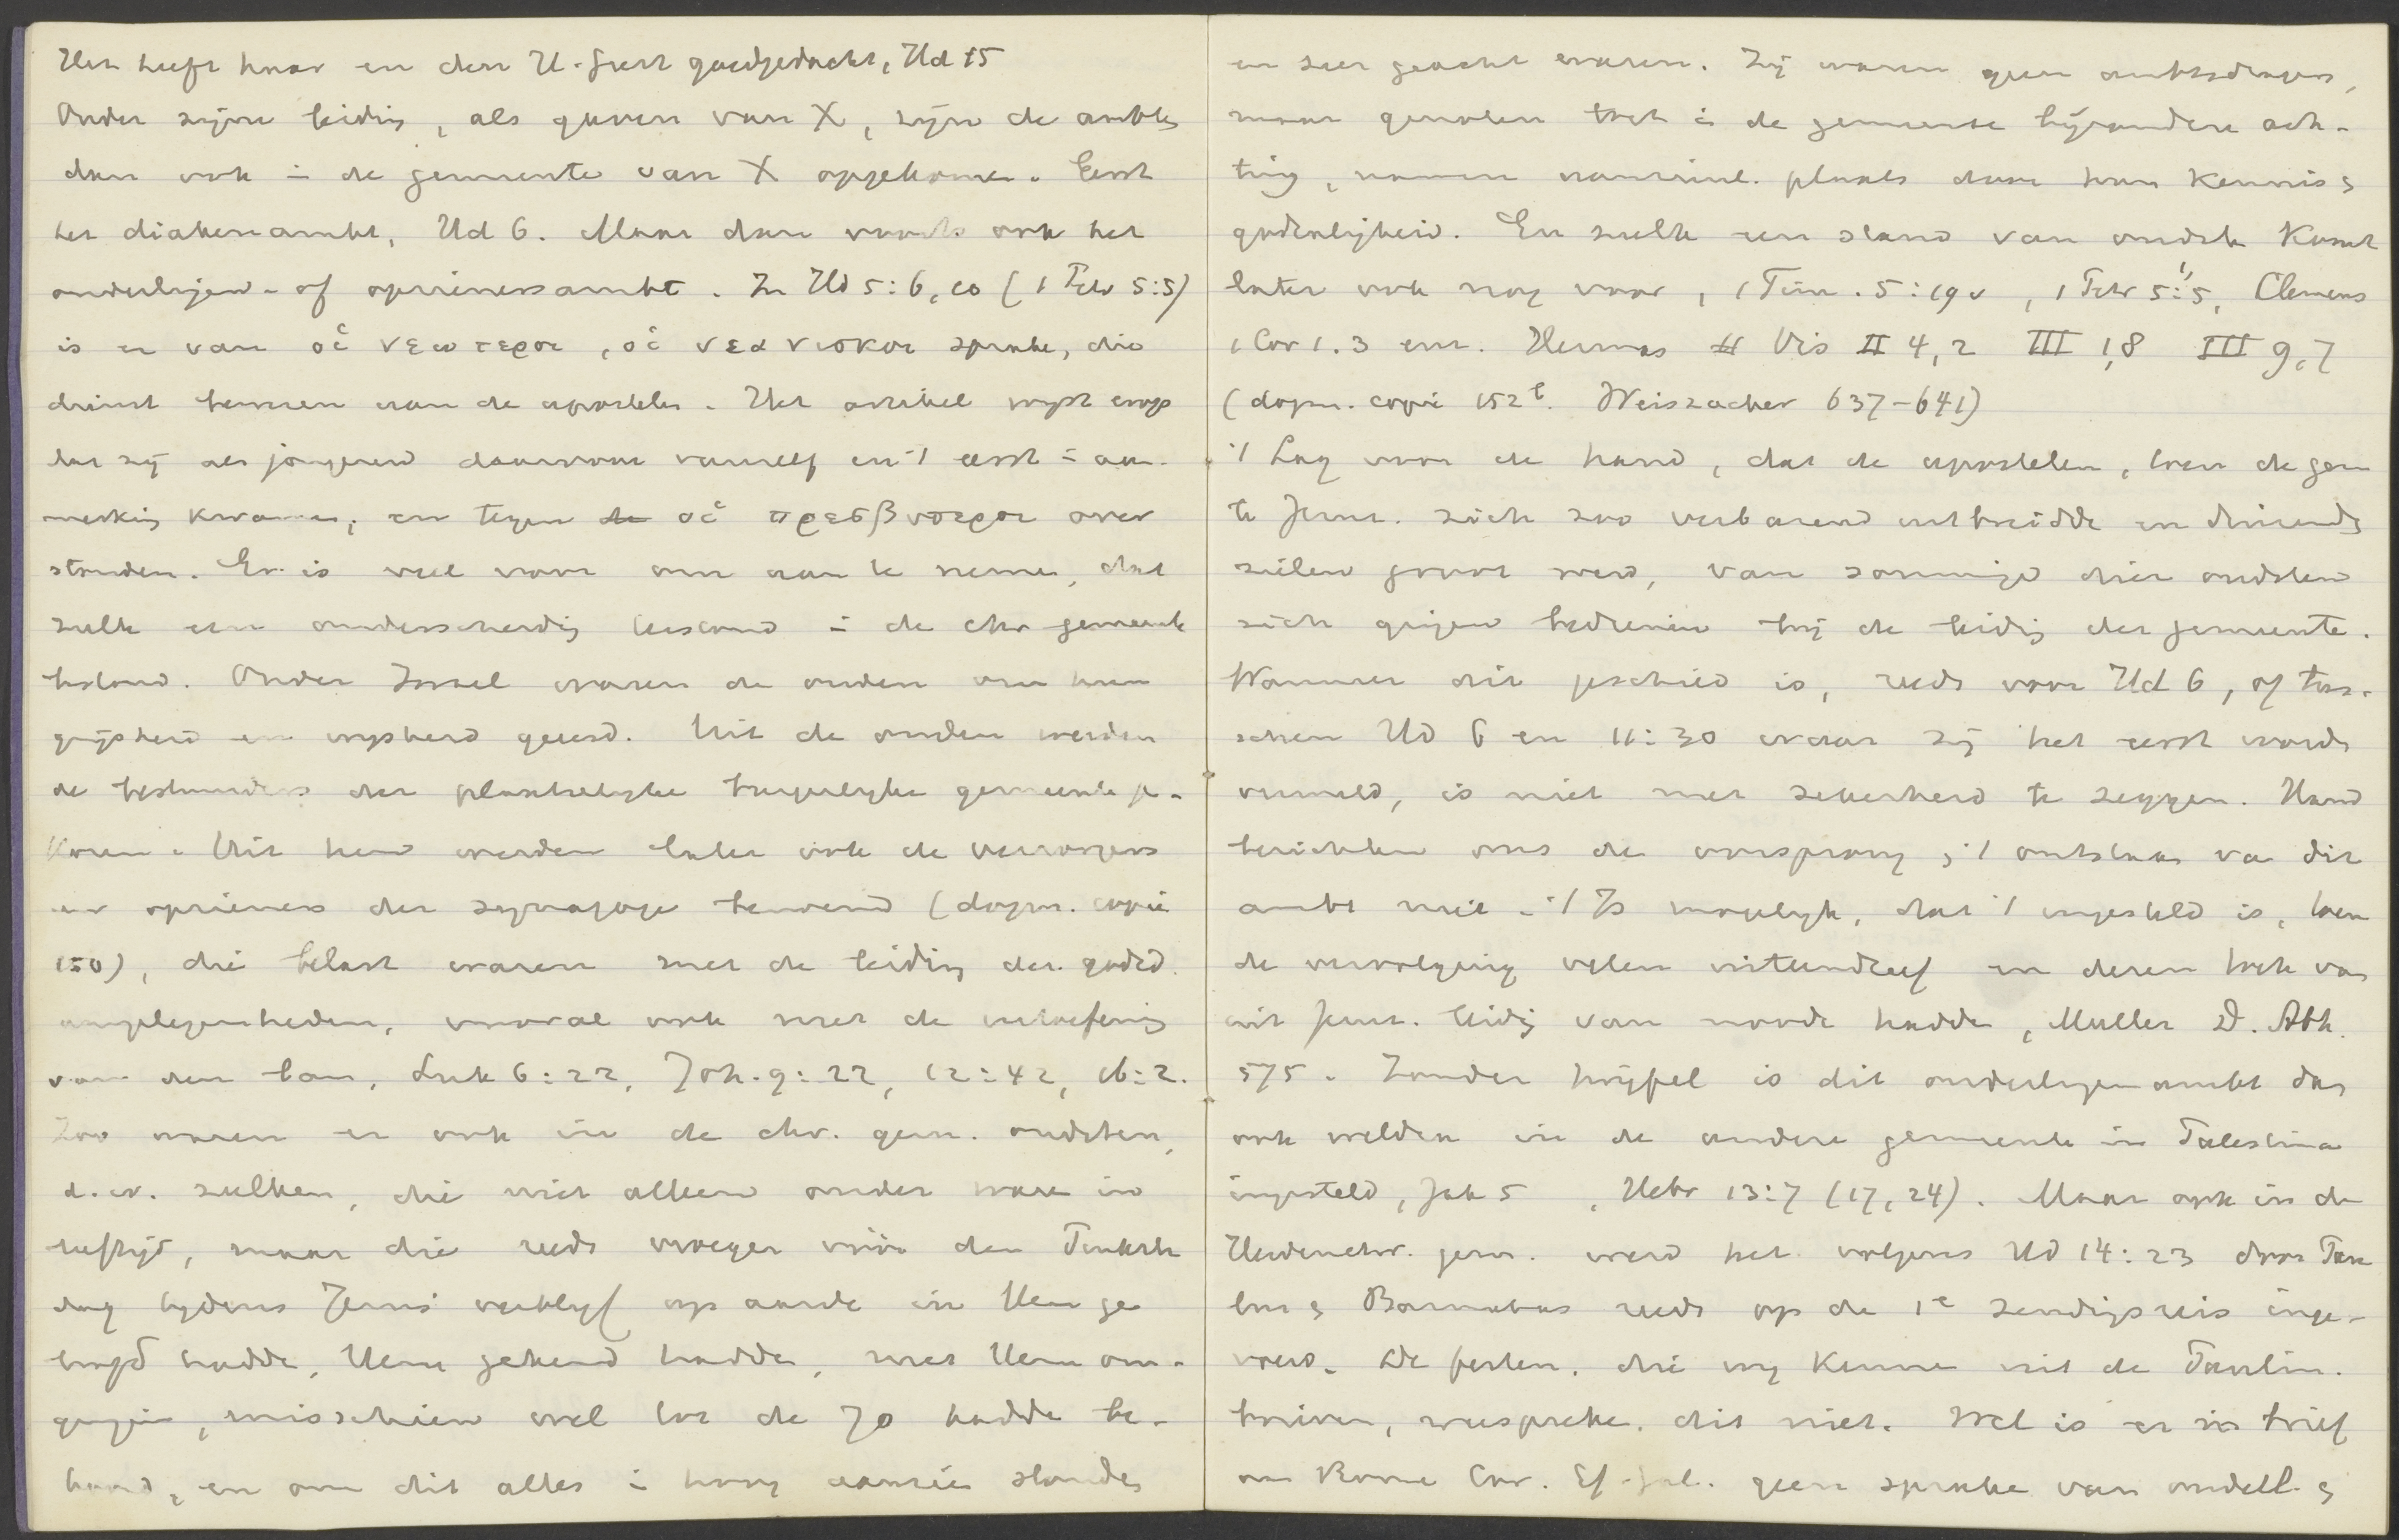 Het heeft haar en den H. Geest goedgedacht, Hd 15
Onder zijne leiding, als gaven van X, zijn de ambten
dan ook in de gemeente van X opgekomen. Eerst
het diakenambt, Hd 6. Maar dan voorts ook het
ouderlingen- of opzienersambt. In Hd 5:6, 10 (1 Petr 5:5)
is er van οἱ νεωτεροι, οἱ νεανισκοι sprake, die
dienst bewezen aan de apostelen. Het artikel wijst erop
dat zij als jongeren daarvoor vanzelf en 't eerst in aan-
merking kwamen, en tegen de οἱ πρεσβυτεροι over
stonden. Er is veel voor om aan te nemen, dat
zulk een onderscheiding bestond in de chr gemeente
bestond. Onder Israel waren de ouden om hun
grijsheid en wijsheid geeerd. Uit de ouden werden
de bestuurders der plaatselijke burgerlijke gemeente ge-
kozen. Uit hen werden later ook de verzorgers
en opzieners der synagoge benoemd (dogm. copie
150), die belast waren met de leiding der godsd.
aangelegenheden, vooral ook met de uitoefening
van den ban, Luk 6:22, Joh. 9:22, 12:42, 16:2.
Zoo waren er ook in de chr. gem. oudsten,
d.w. zulken, die niet alleen ouder waren in
leeftijd, maar die reeds vroeger vóór den Pinkster
dag tijdens Jezus' verblijf op aarde in Hem ge
loofd hadden, Hem gekend hadden, met Hem om-
gingen, misschien wel tot de 70 hadden be-
hoord, en om dit alles in hoog aanzien stonden
en zeer geacht waren. Zij waren geen ambtsdragers,
maar genoten toch in de gemeente bijzondere ach-
ting, namen voornaml. plaats door hun kennis &
godzaligheid. En zulk een stand van oudsten komt
later ook nog voor, 1 Tim. 5:19 v, 1 Petr 5:1,5, Clemens
1 Cor 1.3 enz. Hermas Vis II 4,2 III 1,8 III 9,7
(dogm. copie 152b. Weiszacher 637-641)
't Lag voor de hand, dat de apostelen, toen de gem
te Jeruz. zich zoo verbazend uitbreidde en duizende
zielen groot werd, van sommige dier oudsten
zich gingen bedienen bij de leiding der gemeente.
Wanneer dit geschied is, reeds voor Hd 6, of tus-
schen Hd 6 en 11:30 waar zij het eerst worden
vermeld, is niet met zekerheid te zeggen. Hand
berichten ons de oorsprong & 't ontstaan van dit
ambt niet. 't Is mogelijk, dat 't ingesteld is, toen
de vervolging velen uiteendreef en dezen toch van
uit Jeruz. leiding van noode hadden, Muller D. Abh.
575. Zonder twijfel is dit ouderlingenambt dan
ook weldra in de andere gemeenten in Palestina
ingesteld, Jak 5 , Hebr 13:7 (17, 24). Maar ook in de
Heidenchr. gem. werd het volgens Hd 14:23 door Pau
lus & Barnabas reeds op de 1e zendingsreis inge-
voerd. De feiten, die wij kennen uit de Paulin.
brieven, weerspreken dit niet. Wel is er in brief
aan Rome Cor. Ef. Gal. geen sprake van oudell. &